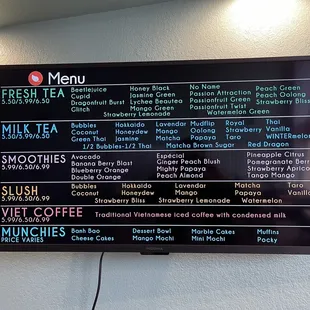 Menu
FRESH TEA
5.50/5.99/6.50
Beetlejuice Honey Black No Name Peach Green
Cupid Jasmine Green Passion Attraction Peach Oolong
Dragonfruit Burst Lychee Beautea Passionfruit Green Strawberry Bliss
Clinch Mango Green Passionfruit Twist Watermelon Green
Strawberry Lemonade
MILK TEA
5.50/5.99/6.50
Bubbles Hokkaido Lavender Mudflip Royal Thai
Coconut Honeydew Mango Oolong Strawberry Vanilla
Green Thai Jasmine Matcha Papaya Taro WINTERmelon
1/2 Bubbles-1/2 Thai Matcha Brown Sugar Red Dragon
SMOOTHIES
5.99/6.50/6.99
Avocado Espécial Pineapple Citrus
Banana Berry Blast Ginger Peach Blush Pomegranate Berry
Blueberry Orange Mighty Papaya Strawberry Aprico
Double Orange Peach Almond Tango Mango
SLUSH
5.99/6.50/6.99
Bubbles Hokkaido Lavender Matcha Taro
Coconut Honeydew Mango Papaya Vanilla
Strawberry Bliss Strawberry Lemonade Watermelon
VIET COFFEE
5.99/6.50/6.99
Traditional Vietnamese iced coffee with condensed milk
MUNCHIES
PRICE VARIES
Banh Bao Dessert Bowl Marble Cakes Muffins
Cheese Cakes Mango Mochi Mini Mochi Pocky